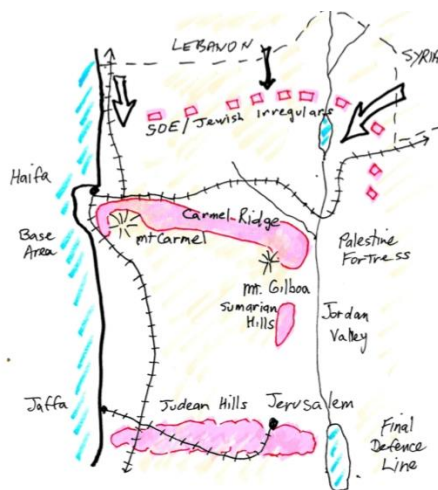 LEBANON
SYRIA
SOE/Jewish Irregulars
Haifa
Carmel-Ridge
Base
Area
mt Carmel
Palestine
Fortress
mt. Gilboa
Sumarian
Hills
Jordan
Valley
Jaffa
Judean Hills
Jerusalem
Final
Defence
Line